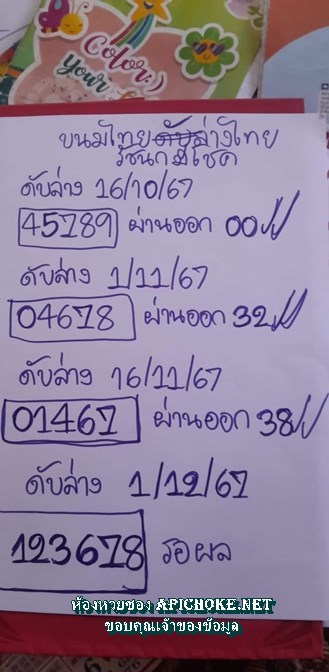 Color:)
Your
ขนมไทยดับล่างไทย
รัชนกมีโชค
ดับล่าง 16/10/67
45789 ผ่านออก 00
ดับล่าง 1/11/67
04678 ผ่านออก 32
ดับล่าง 16/11/67
01467 ผ่านออก 38
ดับล่าง 1/12/67
123678 รอผล
ห้องหวยซอง APICHOKE.NET
ขอบคุณเจ้าของข้อมูล